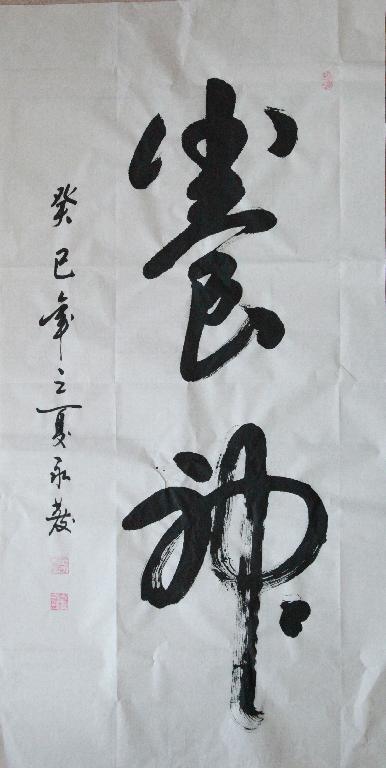 養神
癸巳年之夏永發